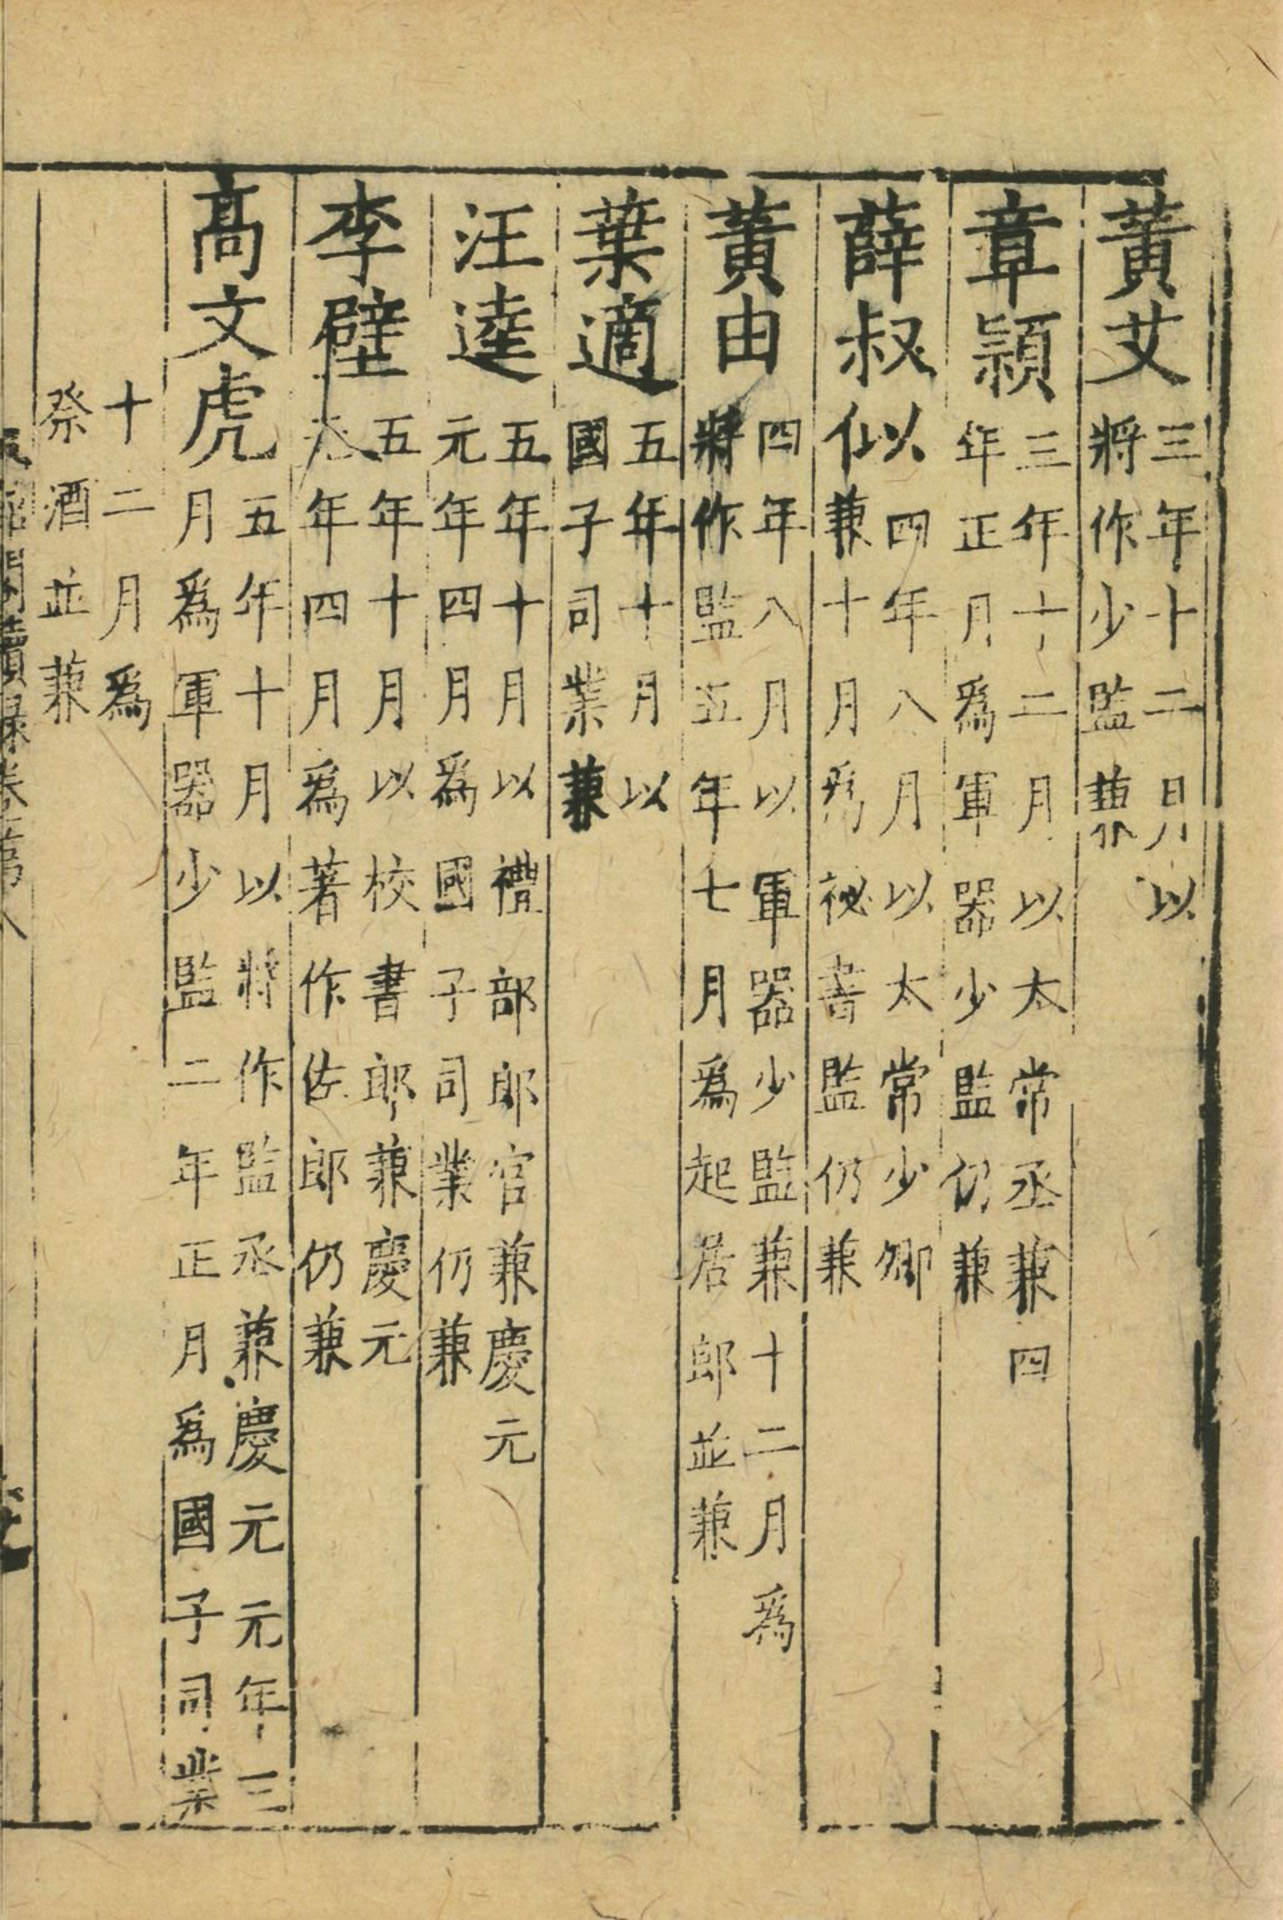 黃艾三年十二月以
將作少監兼
章頴三年十二月以太常丞兼四
年正月爲軍器少監仍兼
薛叔似以四年八月以太常少卿
兼十月爲祕書監仍兼
黃由四年八月以軍器少監兼十二月爲
將作監五年七月爲起居郎並兼
葉適五年十月以
國子司業兼
汪逵五年十月以禮部郎官兼慶元
元年四月爲國子司業仍兼
李壁五年十月以校書郎兼慶元
元年四月爲著作佐郎仍兼
髙文虎五年十月以將作監丞兼慶元元年三
月爲軍器少監二年正月爲國子司業
十二月爲
祭酒並兼
館閣續錄卷第八